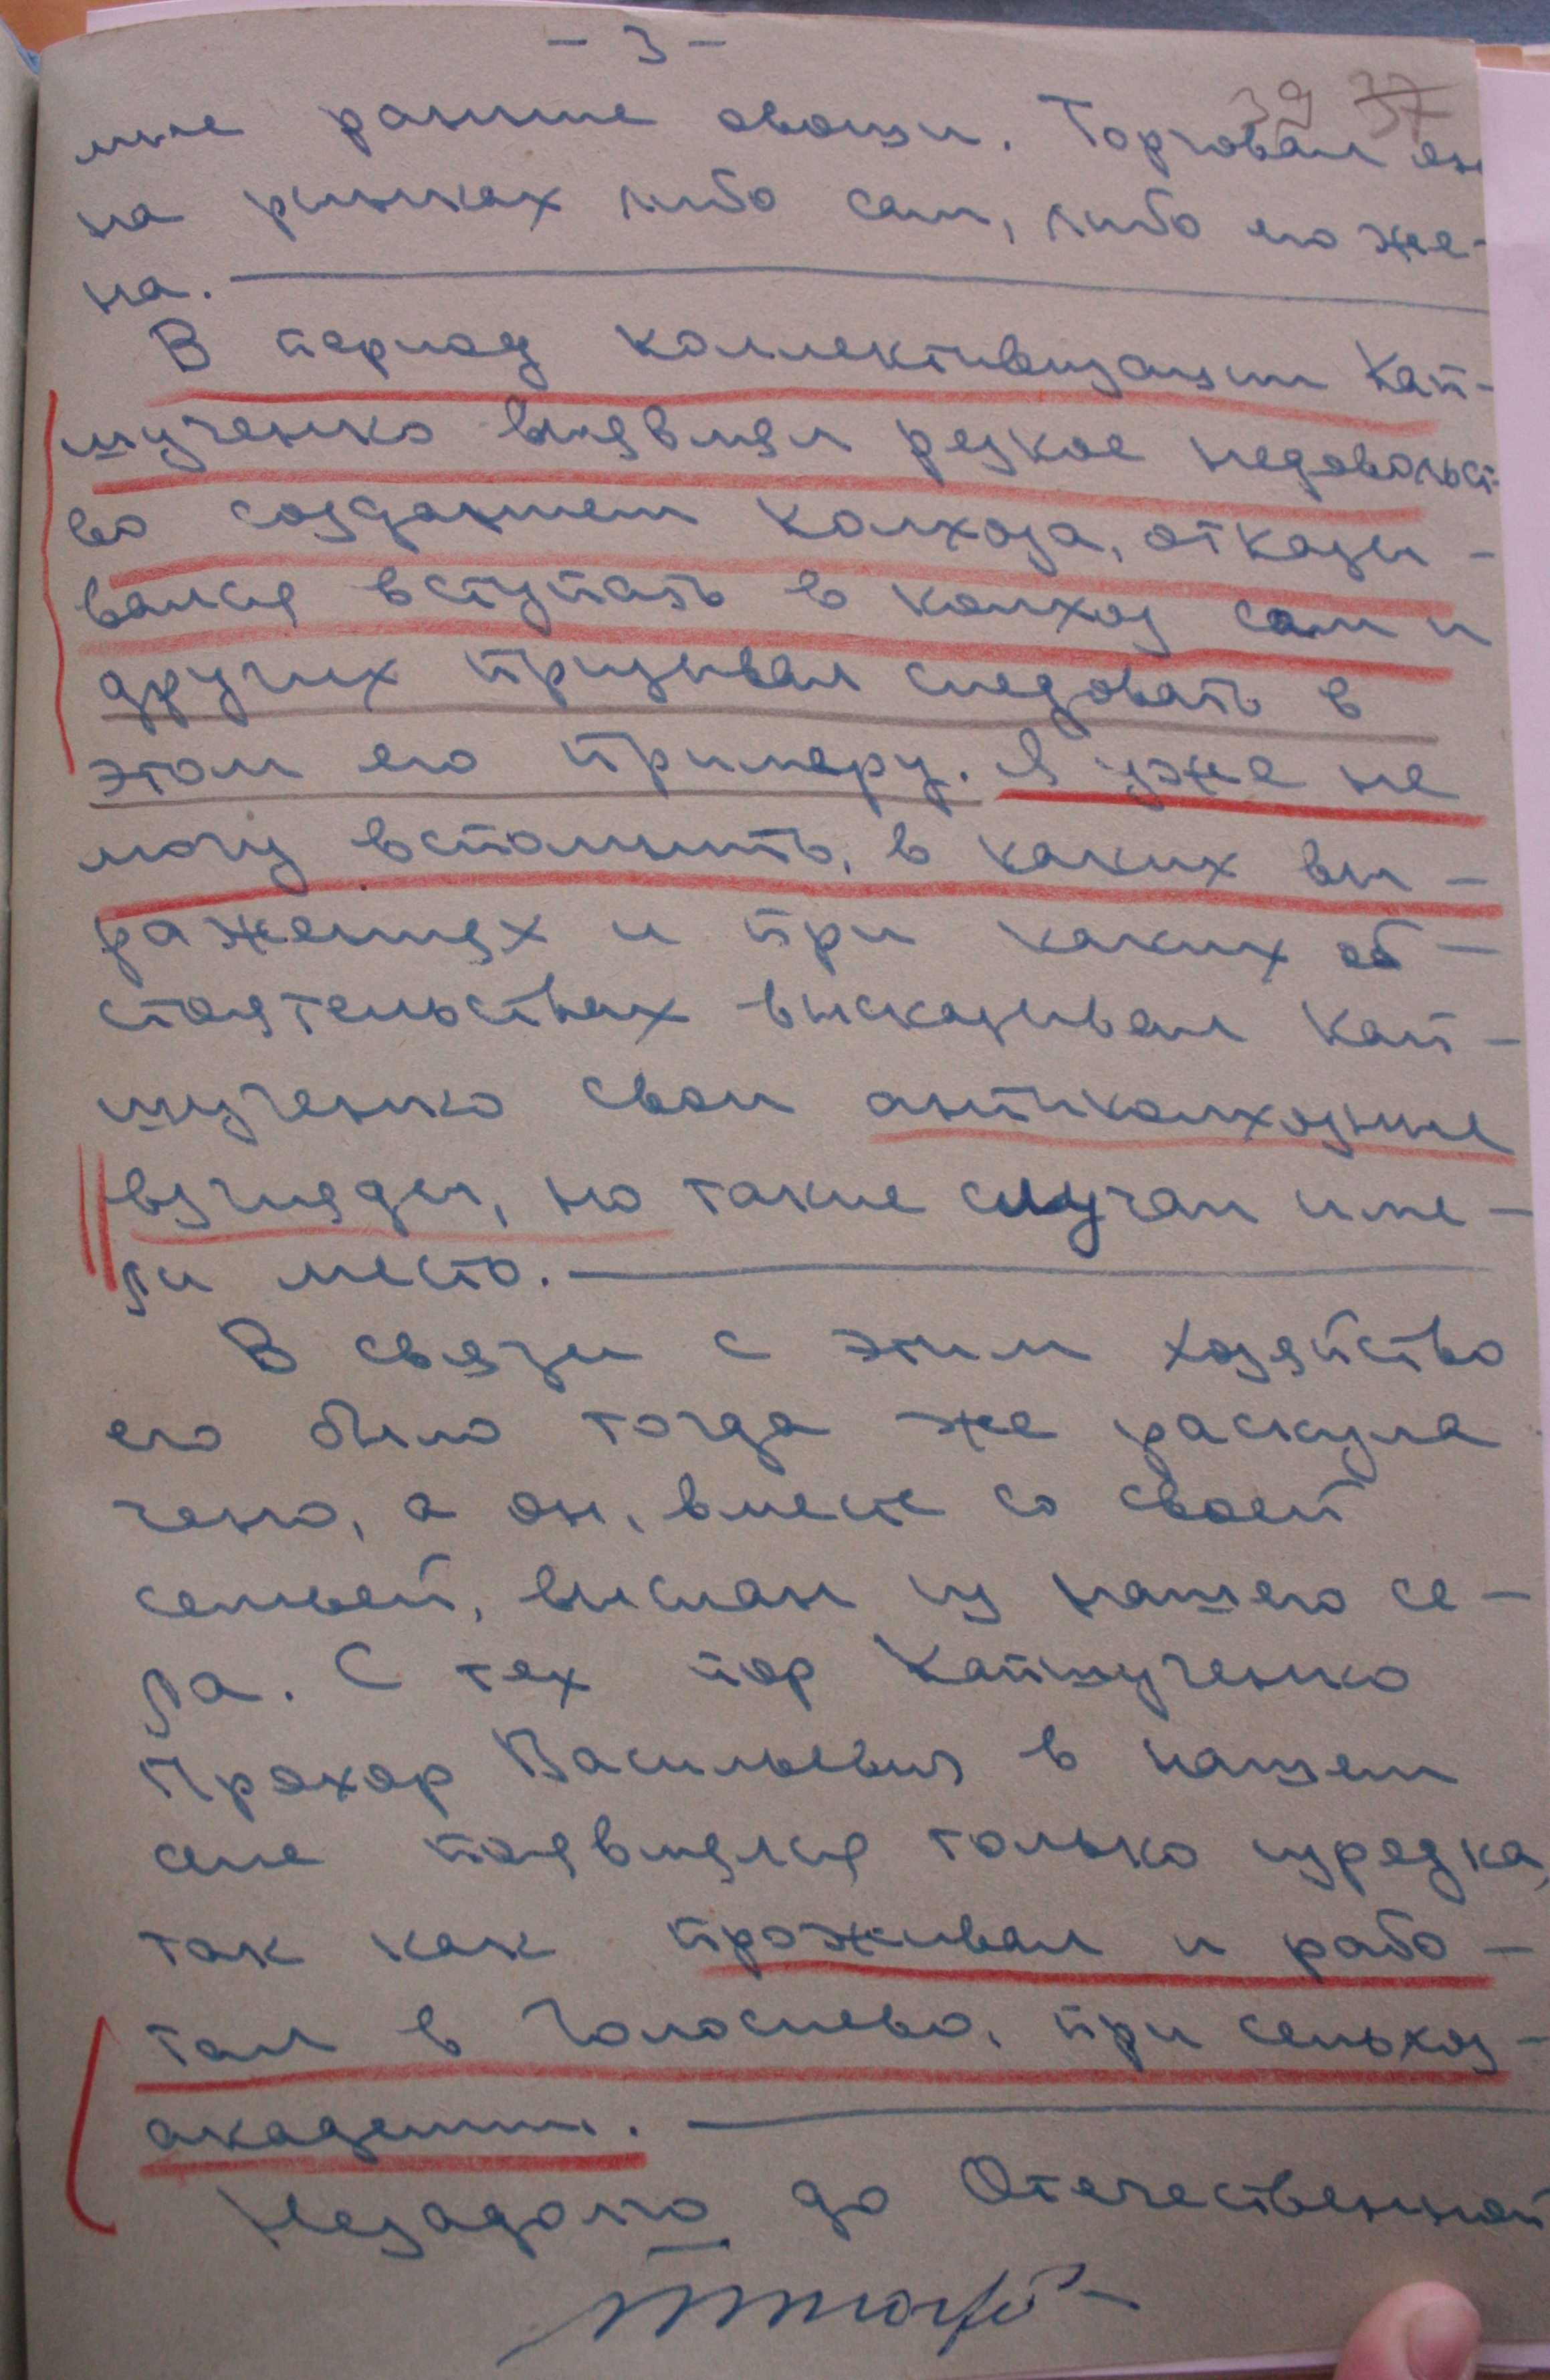 - 3 -
39 37
мые ранние овощи. Торговал он
на рынках либо сам, либо его же-
на.
В период коллективизации Кап-
шученко выявлял резкое недовольст-
во созданием колхоза, отказы-
вался вступать в колхоз сам и
других призывал следовать в
этом его примеру. Я уже не
могу вспомнить, в каких вы-
ражениях и при каких об-
стоятельствах высказывал Кап-
шученко свои антиколхозные
взгляды, но такие случаи име-
ли место.
В связи с этим хозяйство
его было тогда же раскула-
чено, а он, вместе со своей
семьей, выслан из нашего се-
ла. С тех пор Капшученко
Прохор Васильевич в нашем
селе появлялся только изредка,
так как проживал и рабо-
тал в Голосиево, при сельхоз-
академии.
Незадолго до Отечественной